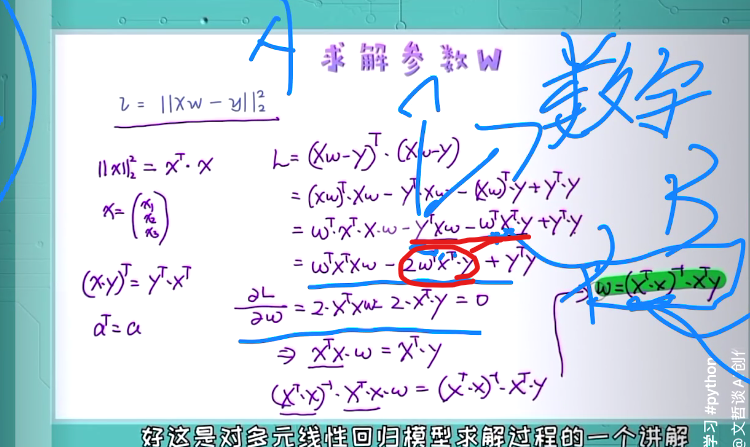 求解参数W
A
数字
B
L = ||Xw - y||₂²
||x||₂² = xᵀ·x
x = (x₁ x₂ x₃)
(x·y)ᵀ = yᵀ·xᵀ
aᵀ = a
L = (Xw-y)ᵀ·(Xw-y)
= (xw)ᵀ·Xw - yᵀ·Xw - (Xw)ᵀ·y + yᵀ·y
= wᵀ·xᵀ·x·w - yᵀxw - wᵀxᵀy + yᵀ·y
= wᵀxᵀxw - 2wᵀxᵀ·y + yᵀy
∂L/∂w = 2·xᵀxw - 2·xᵀ·y = 0
⇒ xᵀx·w = xᵀ·y
(xᵀ·x)⁻¹·xᵀ·x·w = (xᵀ·x)⁻¹·xᵀ·y
⇒ w=(xᵀ·x)⁻¹·xᵀy
好这是对多元线性回归模型求解过程的一个讲解
学习 #python
@文哲谈